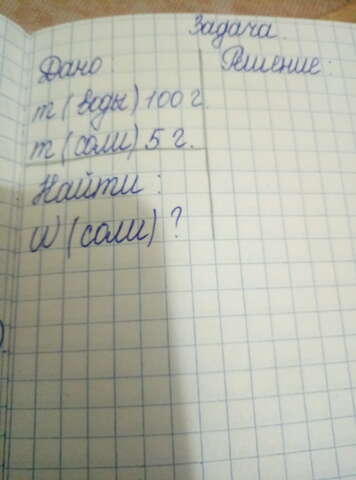 Задача.
Дано: Решение:
m (воды) 100 г.
m (соли) 5 г.
Найти:
W (соли) ?